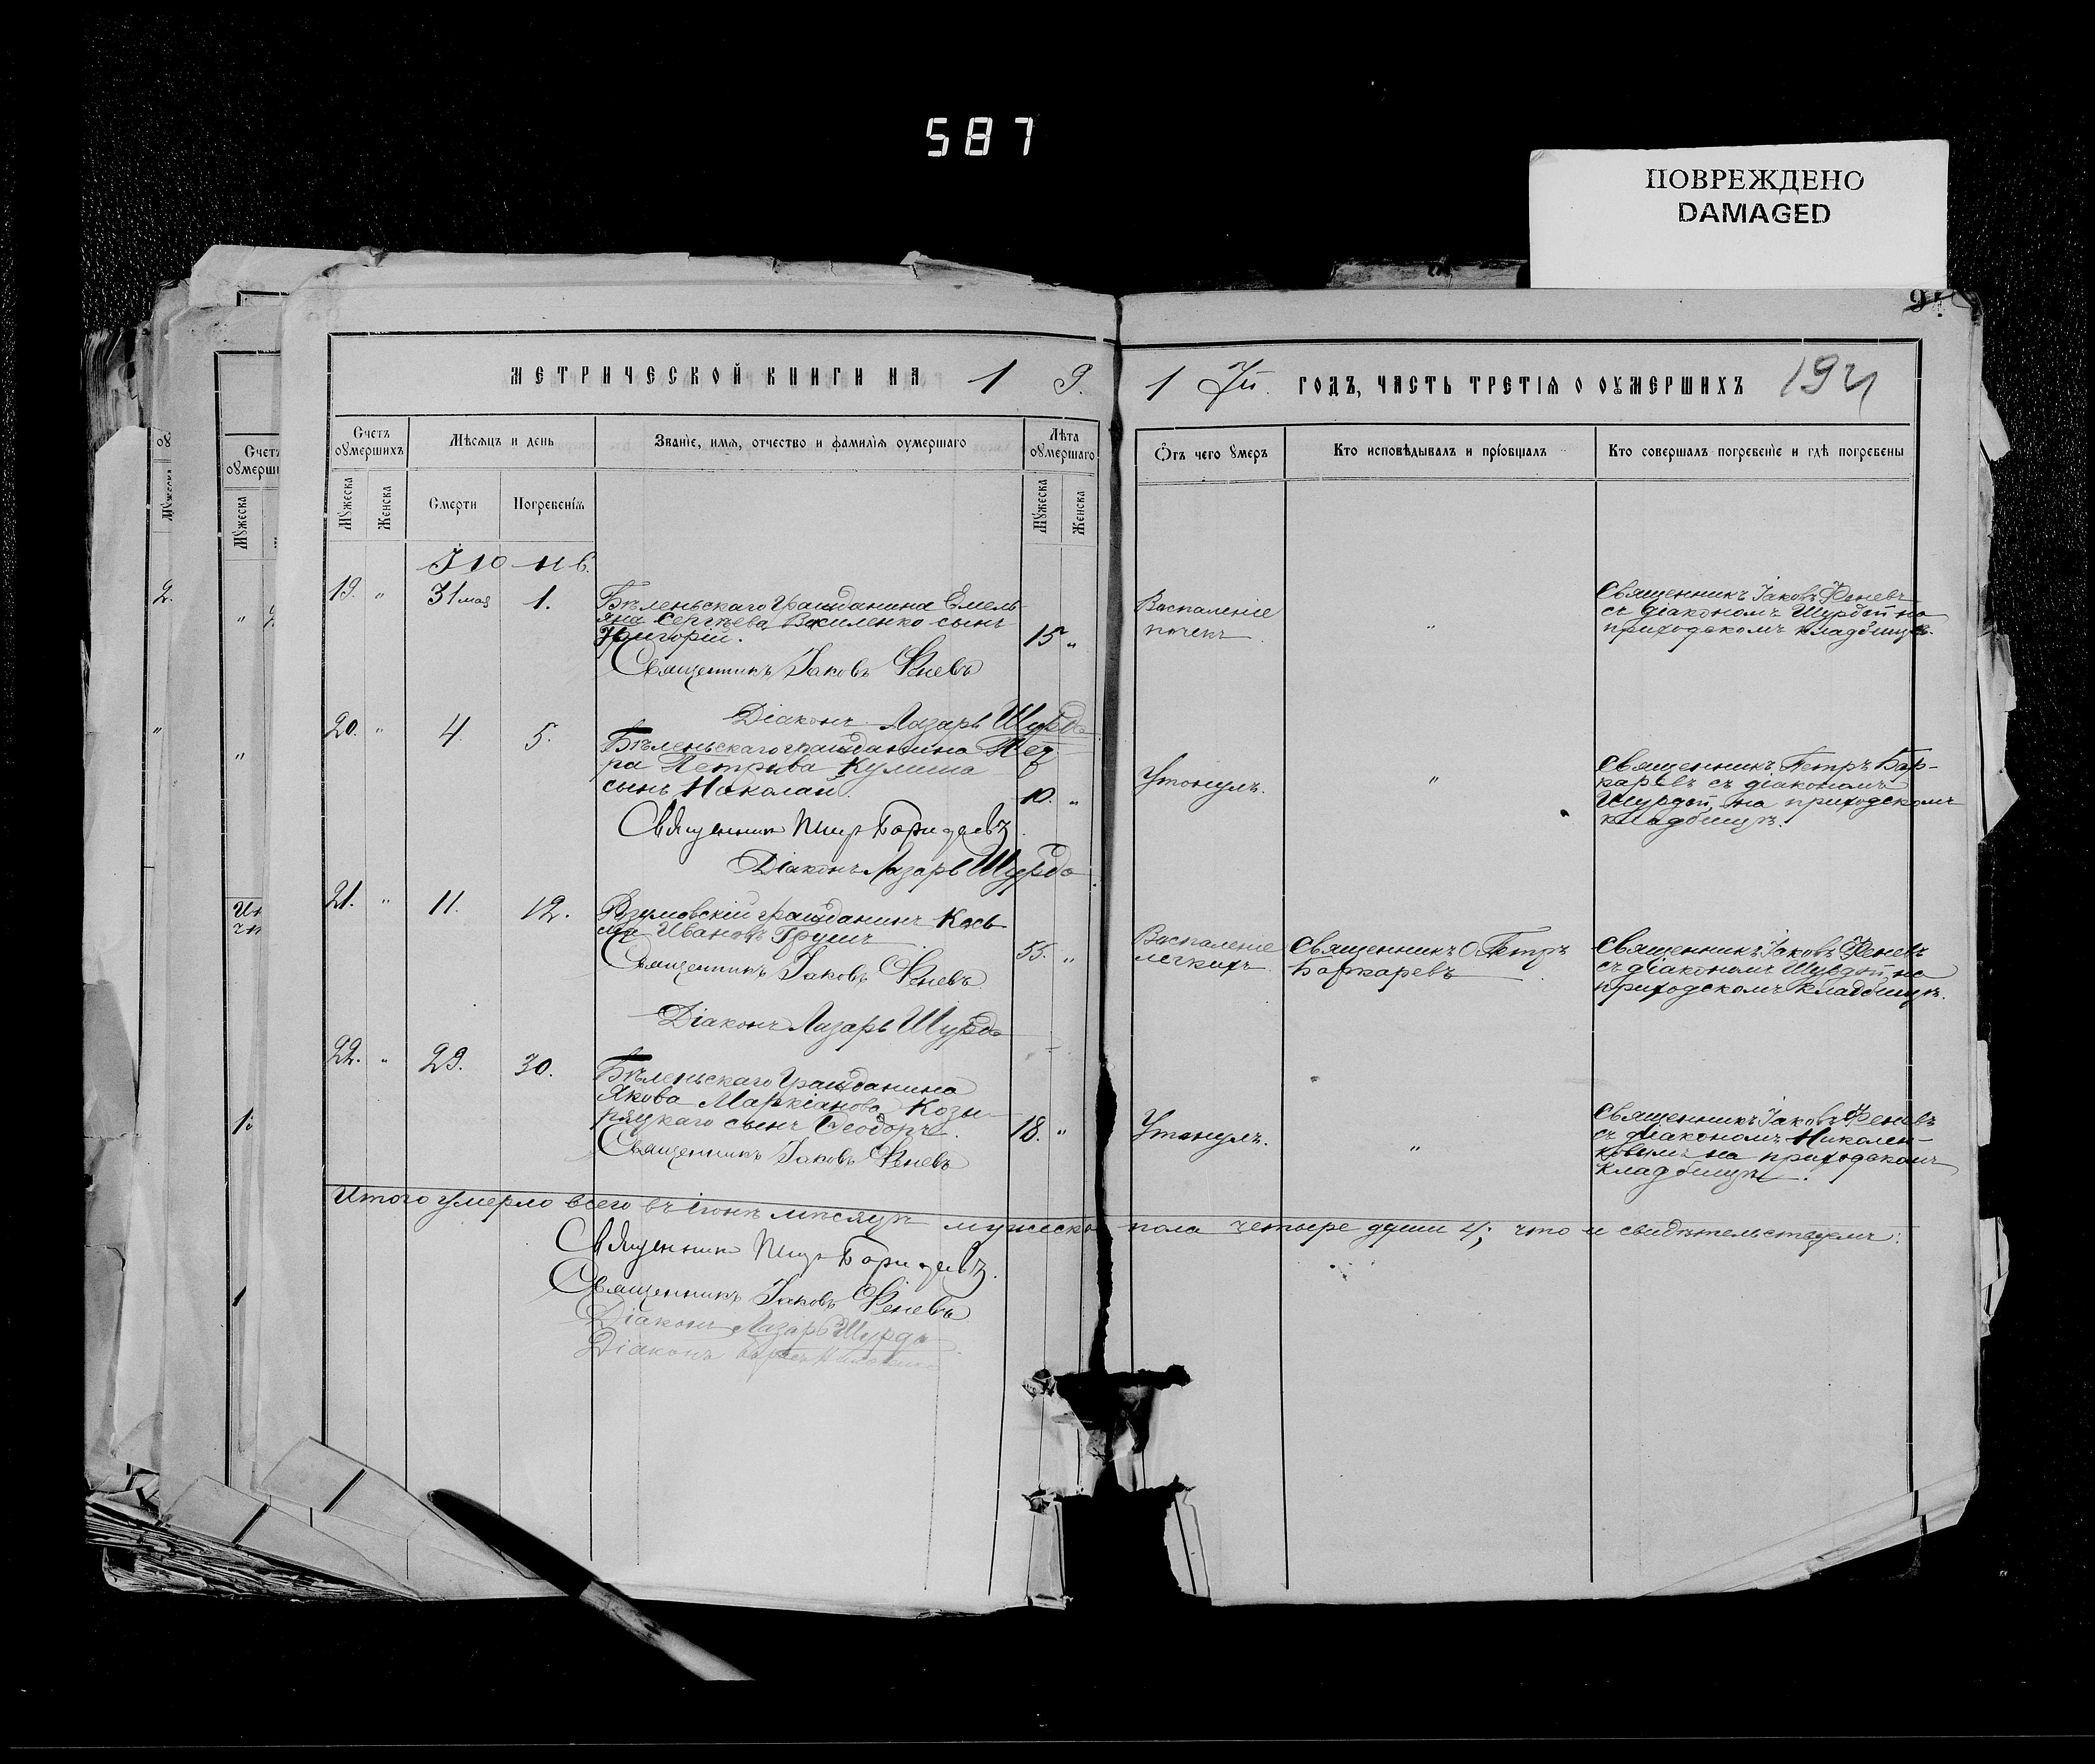 587
ПОВРЕЖДЕНО
DAMAGED
МЕТРИЧЕСКОЙ КНИГИ НА 1 9.
1 7й. ГОДЪ, ЧАСТЬ ТРЕТІЯ О ОУМЕРШИХЪ 194
Счетъ оумершихъ
Мѣсяцъ и день
Званіе, имя, отчество и фамилія оумершаго
Лѣта оумершаго
Отъ чего умеръ
Кто исповѣдывалъ и пріобщалъ
Кто совершалъ погребеніе и гдѣ погребены
Мужеска
Женска
Смерти
Погребенія
Мужеска
Женска
Іюнь.
19. " 31 мая 1.
Бѣленьскаго Гражданина Емель-
яна Сергѣева Василенко сынъ
Григорій.
15 "
Воспаленіе
почекъ
"
Священникъ Іаковъ Феневъ
съ діакономъ Шурдой на
приходскомъ кладбищѣ.
Священникъ Іаковъ Феневъ
Діаконъ Лазарь Шурда
20. " 4. 5.
Бѣленьскаго гражданина Пет
ра Петрова Кулиша
сынъ Николай.
10. "
Утонулъ.
"
Священникъ Петръ Бар-
каревъ съ діакономъ
Шурдой, на приходскомъ
кладбищѣ.
Священникъ Петръ
Діаконъ Лазарь Шурда
21. " 11. 12.
Розумовскій гражданинъ Кось-
ма Ивановъ Грушъ
55. "
Воспаленіе
легкихъ
Священникъ О. Петръ
Баркаревъ
Священникъ Іаковъ Феневъ
съ діакономъ Шурдой, на
приходскомъ кладбищѣ.
Священникъ Іаковъ Феневъ
Діаконъ Лазарь Шурда
22. " 29. 30.
Бѣленьскаго Гражданина
Якова Маркіанова Козы-
ряцкаго сынъ Ѳеодоръ.
18. "
Утонулъ.
"
Священникъ Іаковъ Феневъ
съ діакономъ Николен-
ковымъ на приходскомъ
кладбищѣ.
Священникъ Іаковъ Феневъ
Итого умерло всего въ іюнѣ мѣсяцѣ мужеско пола четыре души 4; что и свидѣтельствуемъ:
Священникъ Петръ
Священникъ Іаковъ Феневъ
Діаконъ Лазарь Шурда
Діаконъ